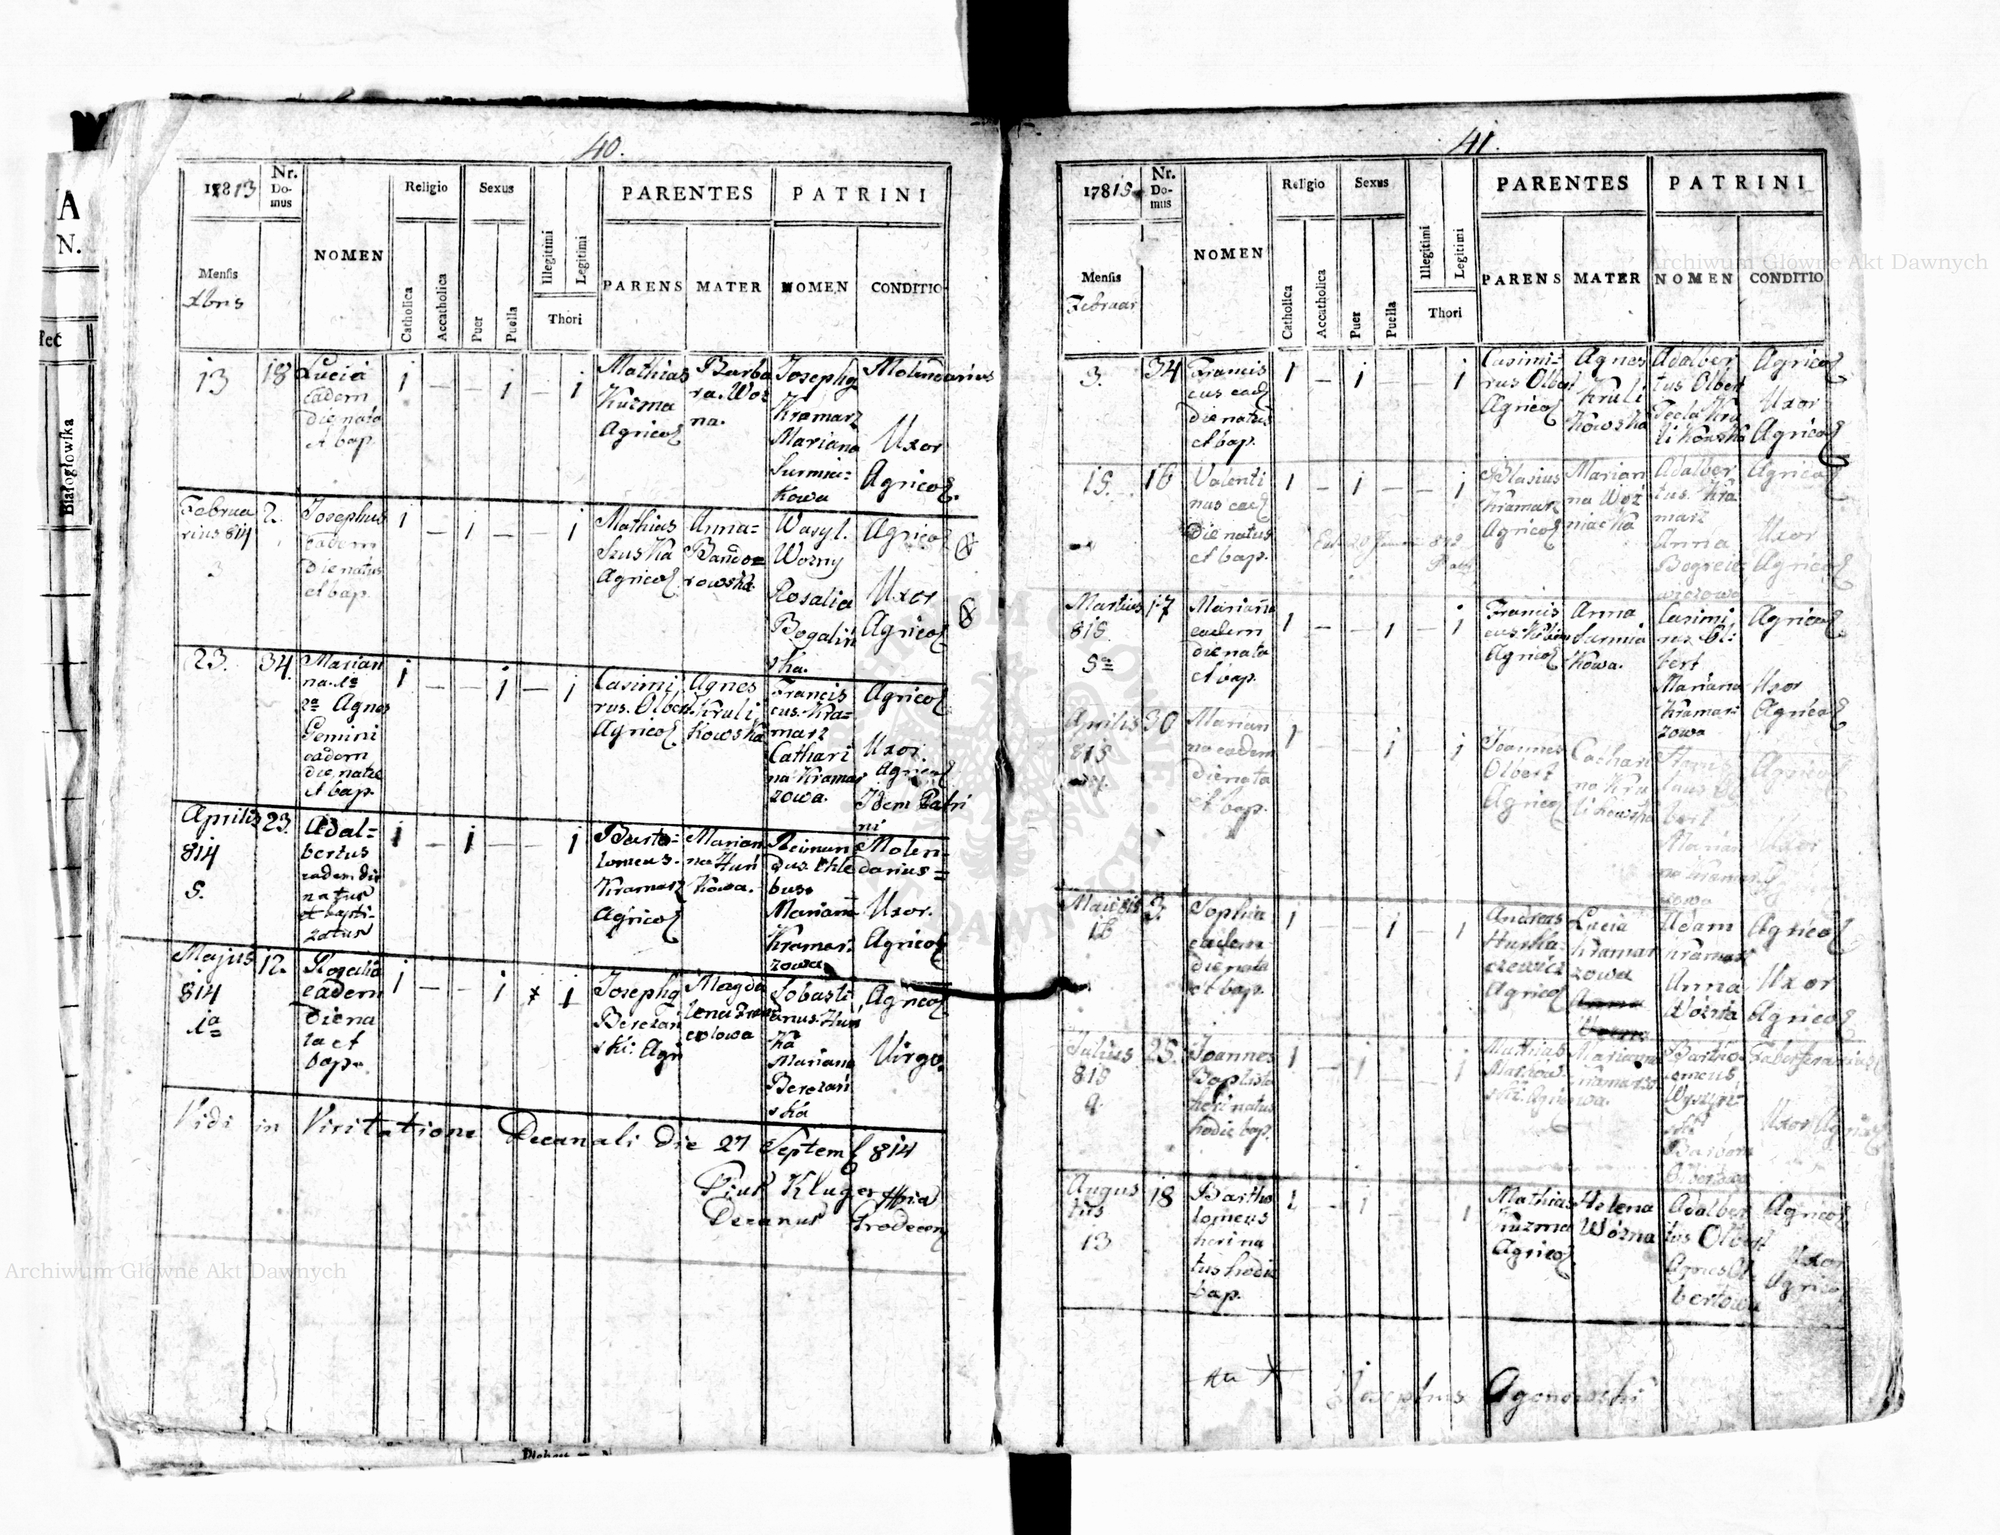 40.
1813
Nr. Domus
NOMEN
Religio
Sexus
PARENTES
PATRINI
Mensis
Xbris
Catholica
Accatholica
Puer
Puella
Illegitimi
Legitimi
Thori
PARENS
MATER
NOMEN
CONDITIO
13
18
Lucia
eadem
die nata
et bap.
1
—
—
1
—
1
Mathias
Kuzma
Agricol
Barba
ra. Woz
na.
Joseph
Kramarz
Mariana
Surmia-
kowa
Molendarius
Uxor
Agricol.
Februa
rius 814
3
2.
Josephus
eadem
die natus
et bap.
1
—
1
—
—
1
Mathias
Szuska
Agricol
Anna-
rowska
Wasyl.
Wozny
Rosalia
Bogaliń
ska.
Agricol
Uxor
Agricol
23.
34.
Marian
na. 1a
2a Agnes
Gemini
eadem
die natae
et bap.
1
—
—
1
—
1
Casimi
rus. Olbert
Agricol
Agnes
Kruli
kowska
Francis
cus. Kra-
marz
Cathari
na Kramar
zowa.
Agricol
Uxor
Agricol
Idem Patri
ni
Aprilis
814
5.
23.
Adal-
bertus
eadem die
natus
et bapti-
zatus
1
—
1
—
—
1
Barto-
lomeus.
Kramarz
Agricol
Marian
na Huń
kowa.
Mariann
Kramar
zowa
Molen-
darius-
Uxor.
Agricol
Majus
814
1a
12.
Rosalia
eadem
die na
ta et
bap.
1
—
—
1
1
Joseph
Berezań
ski. Agri
Magda
lena
Sobasti
anus. Huń
ka
Mariana
Berezań
ska
Agricol
Virgo.
Vidi in Visitatione Decanali die 27 Septem 814
Pius Kluger
Decanus Grodecen
41.
17815
Nr. Domus
NOMEN
Religio
Sexus
PARENTES
PATRINI
Mensis
Februar
Catholica
Accatholica
Puer
Puella
Illegitimi
Legitimi
Thori
PARENS
MATER
NOMEN
CONDITIO
3.
34
Francis
cus ead
die natus
et bap.
1
—
1
—
1
Casimi-
rus Olbert
Agricol
Agnes
Kruli
kowska
Adalber
tus Olbert
Tecla Kru
likowska
Agricol
Uxor
Agricol
15.
16
Valenti
nus ead
die natus
et bap.
1
—
1
—
—
1
Blasius
Kramarz
Agricol
Marian
na Woź
niacka
Adalber
tus. Kra
marz
Anna
Agricol
Uxor
Agricol
Martius
815
5a
17
Marianna
eadem
die nata
et bap.
1
—
—
1
—
1
Francis
Agricol
Anna
Surmia
kowa.
Casimi
rus Ol-
bert
Mariana
Kramar
zowa
Agricol
Uxor
Agricol
Aprilis
815
30
Marian
na eadem
die nata
et bap.
1
—
—
1
1
Joannes
Olbert
Agricol
Cathari
na Kru
likowska
Stanis
laus Ol
bert
Marian
na Kramar
zowa
Agricol
Uxor
Majus 815
16
3.
Sophia
eadem
die nata
et bap.
1
—
—
1
—
1
Andreas
Huska
czewicz
Agricol
Lucia
Kramar
zowa
Adam
Kramarz
Anna
Woźna
Agricol
Uxor
Agricol
Julius
815
9.
25.
Joannes
Baptista
heri natus
hodie bap.
1
—
1
—
1
Mathias
Marianna
Kramarzo
wa.
Bartho-
lomeus
Barbara
Olbertowa
Faber ferrarius
Uxor Agricol
Augus
tus
13
18
Bartho
lomeus
heri na
tus hodie
bap.
1
—
1
—
—
1
Mathias
Kuzma
Agricol
Helena
Woźna
Adalber
tus Olbert
Agnes Ol-
bertowa
Agricol
Uxor
Agricol
Josephus Agonowski
Archiwum Główne Akt Dawnych
Archiwum Główne Akt Dawnych
A
N.
Białogłowska